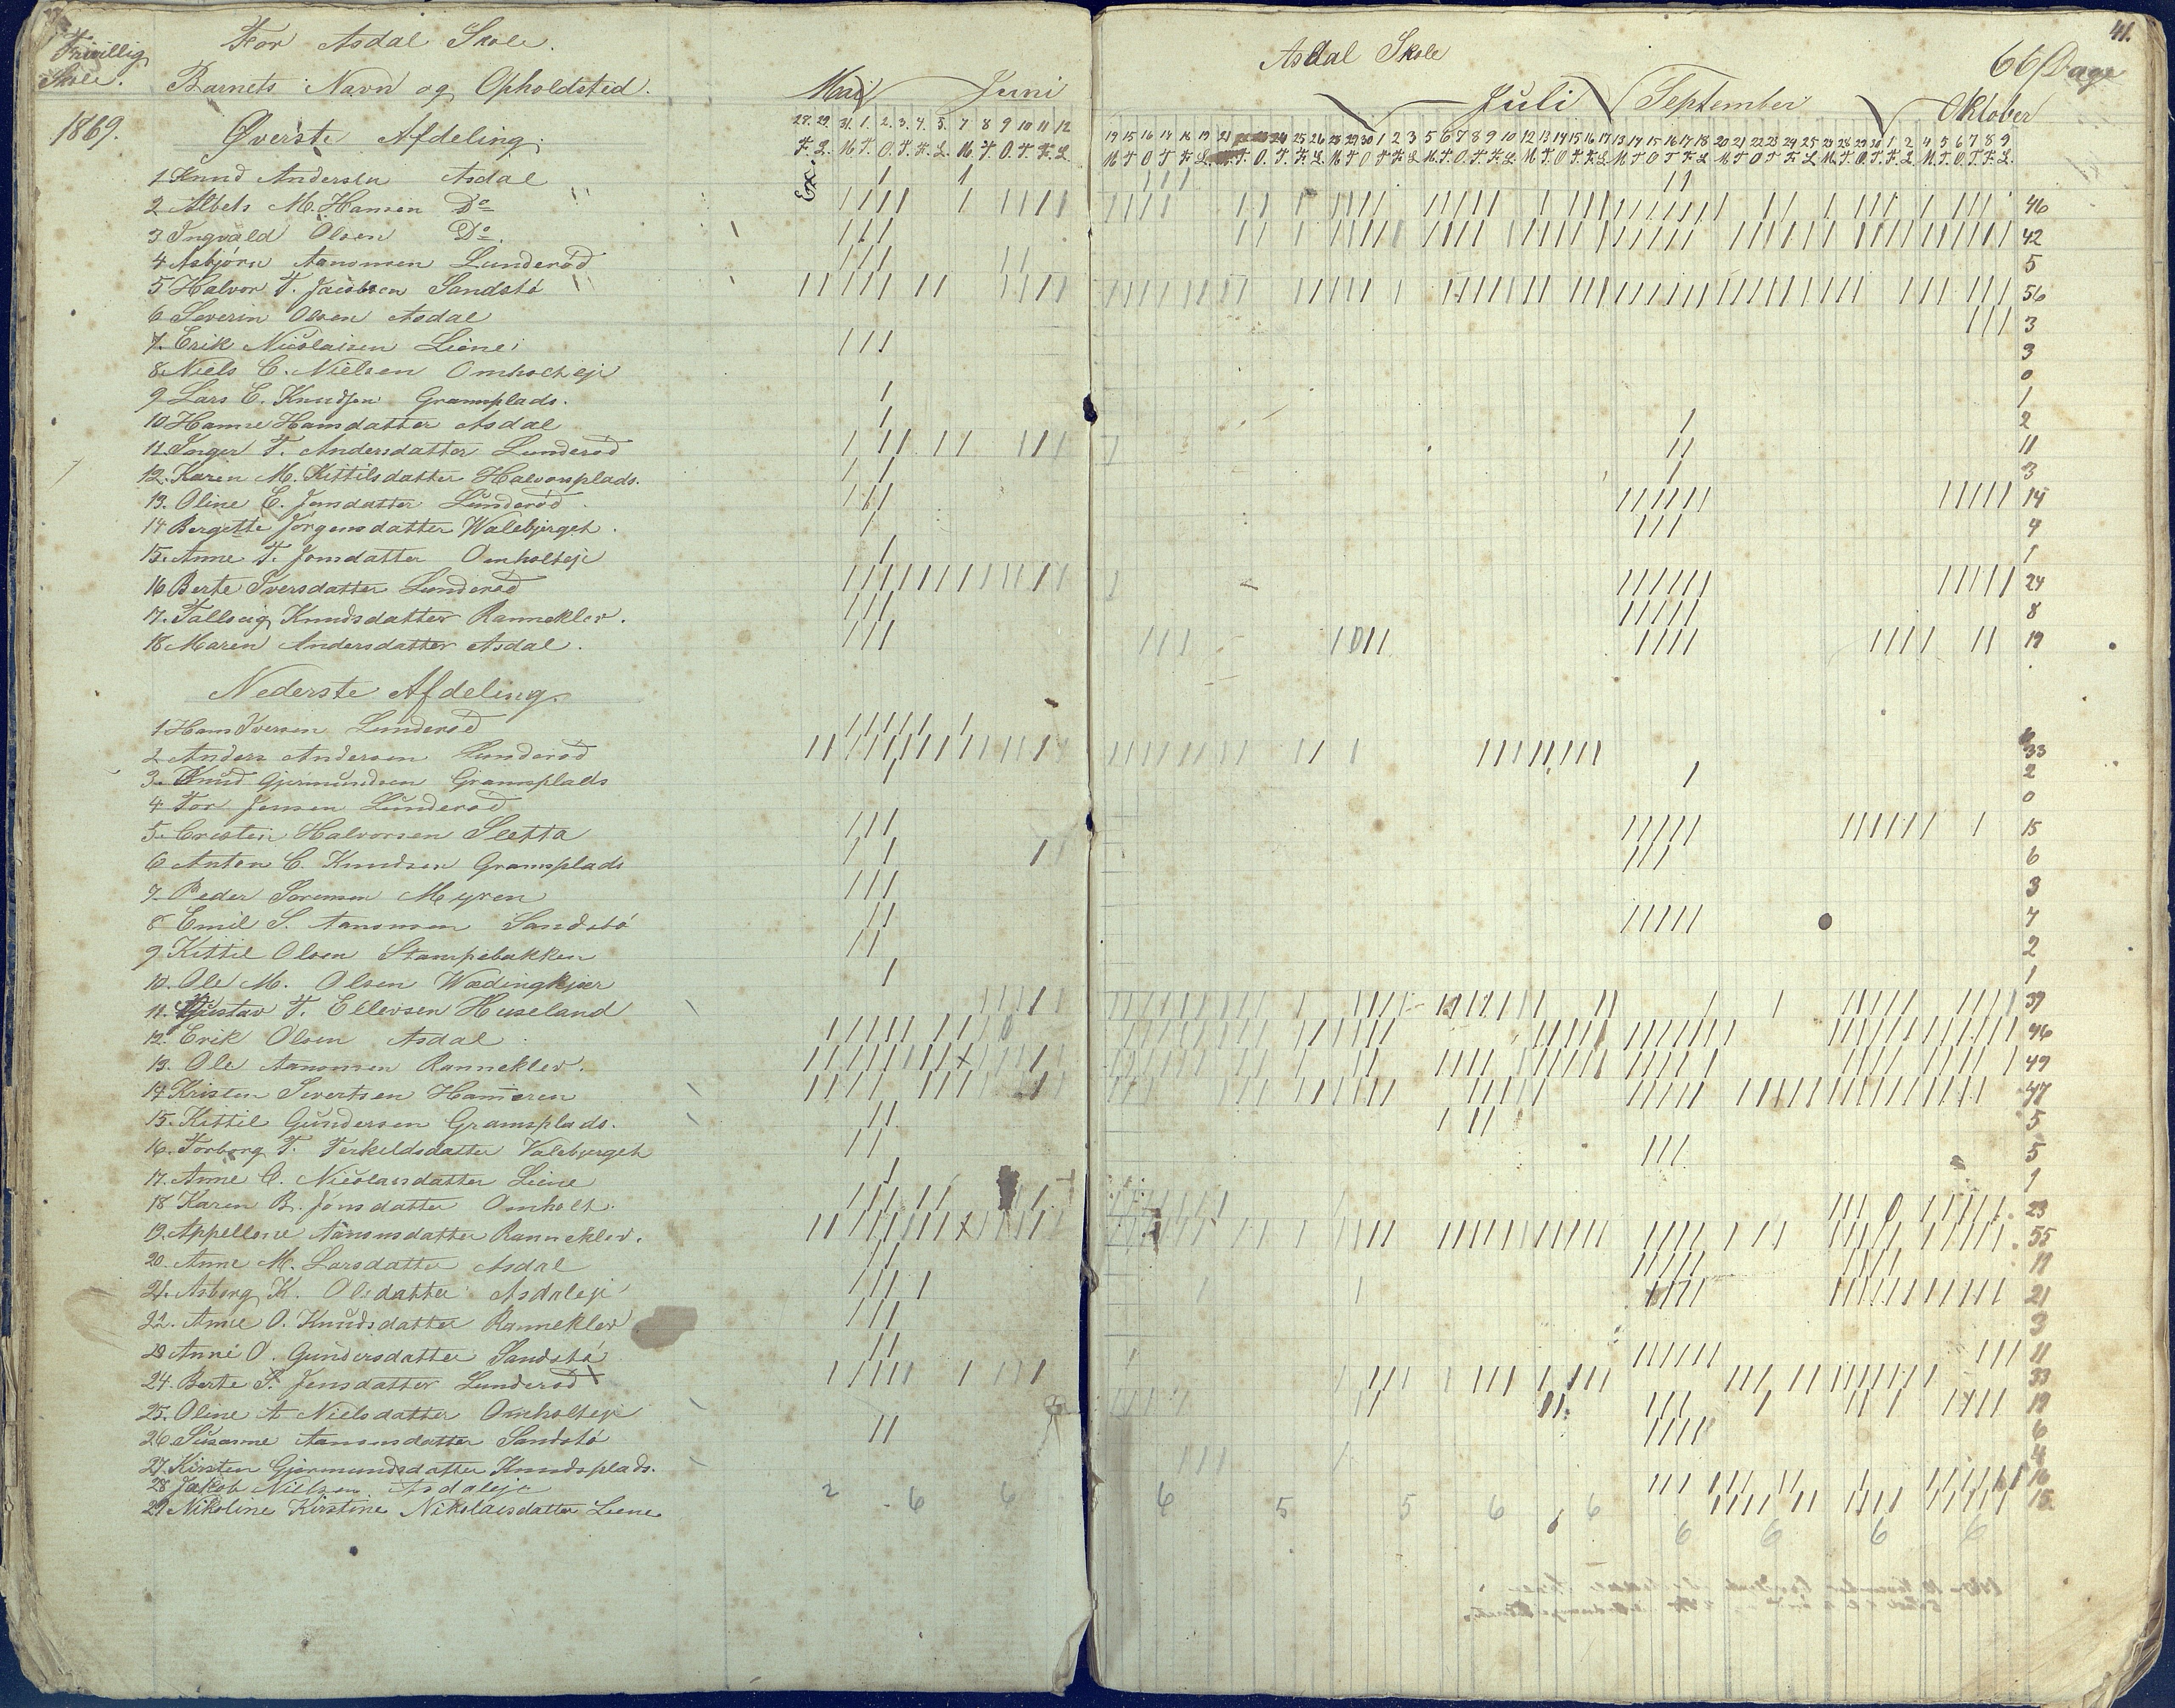 Frivillig Skole.
For Asdal Skole.
Barnets Navn og Opholdsted.
Mai Juni
1869.
Øverste Afdeling.
28. 29. 31. 1. 2. 3. 4. 5. 7 8 9 10 11 12
F. L. M. T. O. T. F. L. M. T. O. T. F. L.
Ex.
1 Knud Andersen Asdal
2 Albets M. Hansen Do
3 Ingvald Olsen Do.
4 Asbjørn Aanonsen Lunderød
5 Halvor T. Jacobsen Sandstø
6 Severin Olsen Asdal
7. Erik Nicolaisen Liene
8. Niels C. Nielsen
9 Lars E. Knudsen Gramsplads.
10 Hanne Hansdatter Asdal
11. Inger T. Andersdatter Lunderød
12. Karen M. Kittilsdatter Halvorsplads.
13. Oline E. Jensdatter Lunderød
14 Bergette Jørgensdatter Walebjerget.
15. Anne T. Jonsdatter Omholteje
16 Berte Iversdatter Lunderød
17. Tallaug Knudsdatter Ranneklev.
18 Maren Andersdatter Asdal.
Nederste Afdeling.
1 Hans Iversen Lunderød
2 Anders Andersen Lunderød
3. Knud Gjermundsen Gramsplads
4 Tor Jensen Lunderød
5. Cristen Halvorsen Sletta
6 Anton C. Knudsen Gramsplads
7. Peder Sørensen Myren
8 Emil S. Aanonsen Sandstø
9 Kittil Olsen Stampebakken
10. Ole M. Olsen Wædingkjær
11. Gustav T. Ellevsen Huseland
12. Erik Olsen Asdal
13. Ole Aanonsen Ranneklev.
14 Kristen Sivertsen Hammeren
15. Kittil Gundersen Gramsplads.
16. Torborg T. Terkeldsdatter Valebjerget
17. Anne C. Nicolaisdatter Liene
18 Karen B. Jonsdatter Omholt.
19. Appellone Aanonsdatter Ranneklev.
20. Anne M. Larsdatter Asdal
21. Asborg K. Olsdatter Asdaleje
22. Anne O. Knudsdatter Ranneklev
23 Anne O. Gundersdatter Sandstø
24. Berte S. Jensdatter Lunderød
25. Oline A. Nielsdatter Omholteje
26 Susanne Aanonsdatter Sandstø
27. Kirsten Gjermundsdatter Knudsplads.
28 Jakob Nielsen Asdaleje
29 Nikoline Kirstine Nikolaisdatter Liene
2 6 6
41.
Asdal Skole
66 Dage
Juli September Oktober
46
42
5
56
3
3
0
1
2
11
3
14
4
1
24
8
19
6
33
2
0
15
6
3
7
2
1
39
46
49
47
5
5
1
23
55
11
21
3
11
33
19
6
4
16
15
6 5 5 6 6 6 6 6 6